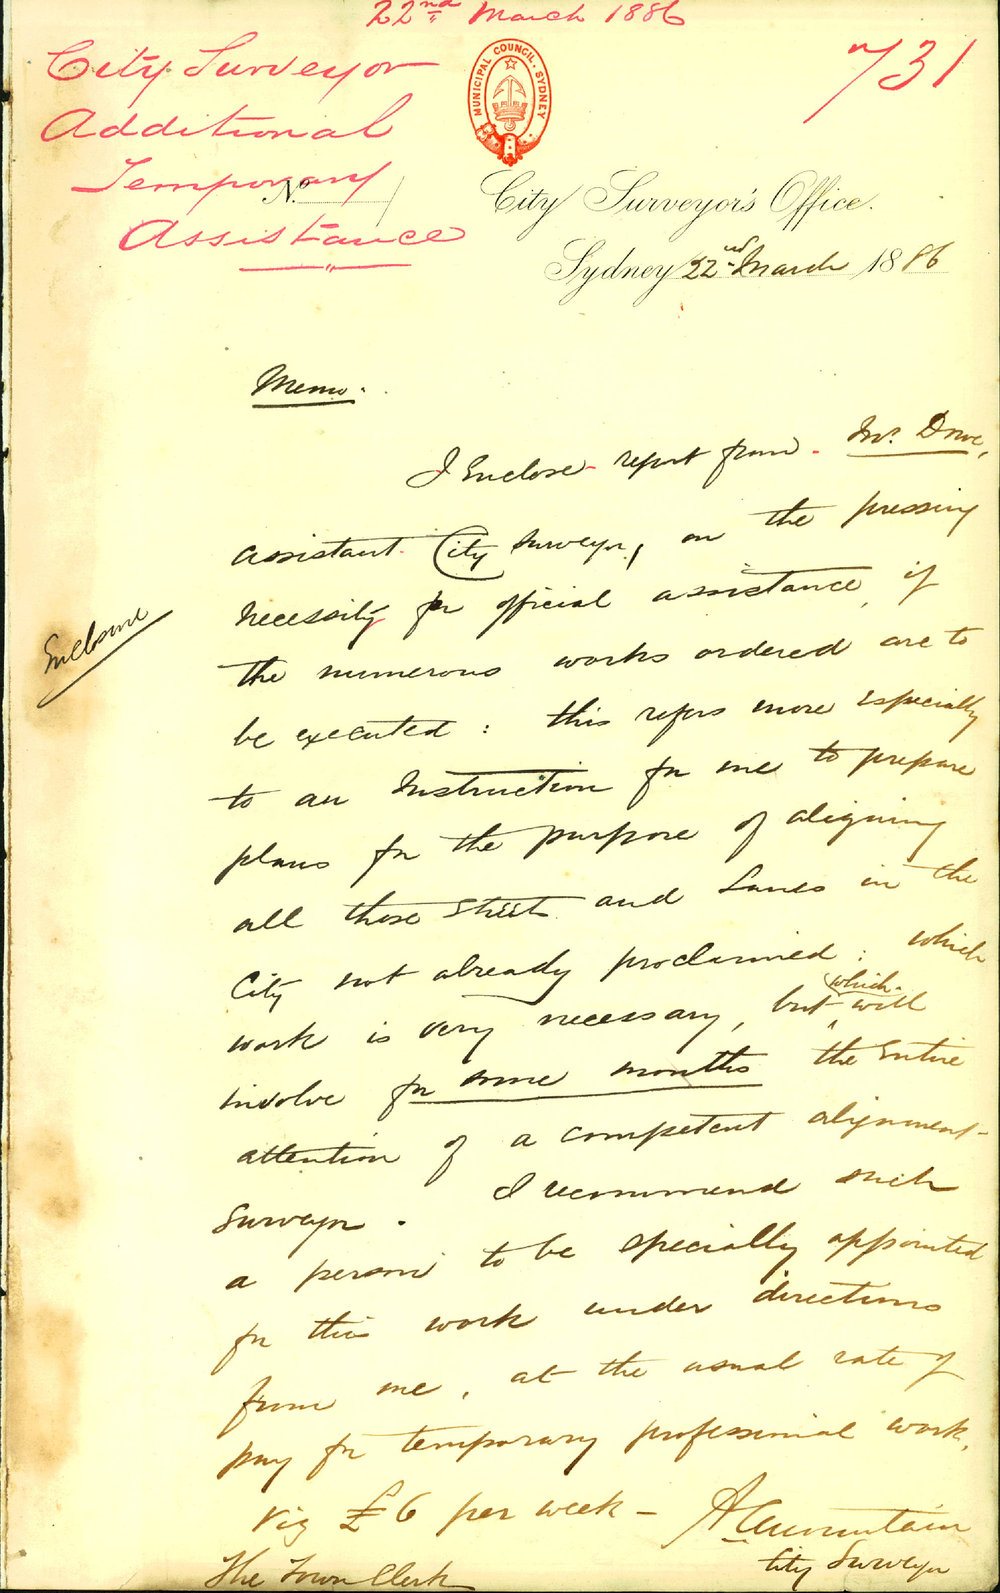 22nd March 1886
731
City Surveyor
Additional
Temporary
Assistance
MUNICIPAL COUNCIL. SYDNEY
No
City Surveyor's Office.
Sydney 22nd March 1886
Memo.
I Enclose report from Mr. Dove,
Assistant City Surveyor, on the pressing
necessity for official assistance, if
the numerous works ordered are to
be executed : this refers more especially
to an Instruction for me to prepare
plans for the purpose of aligning
all those Streets and Lanes in the
City not already proclaimed : which
work is very necessary, but which will
involve for some months the entire
attention of a competent alignment
Surveyor. I recommend such
a person to be specially appointed
for this work under directions
from me, at the usual rate of
pay for temporary professional work,
viz £6 per week —
A C Mountain
City Surveyor
The Town Clerk
Enclosure